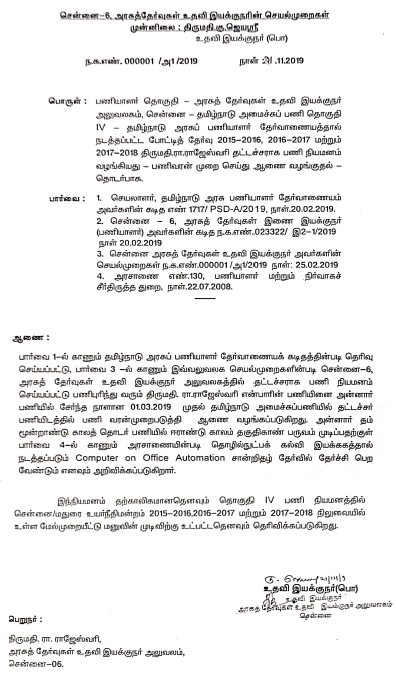 சென்னை-6, அரசுத்தேர்வுகள் உதவி இயக்குநரின் செயல்முறைகள்
முன்னிலை : திருமதி.கு.ஜெயஸ்ரீ
உதவி இயக்குநர் (பொ)
ந.க.எண். 000001 /அ1/2019 நாள் .11.2019
பொருள் : பணியாளர் தொகுதி – அரசுத் தேர்வுகள் உதவி இயக்குநர்
அலுவலகம், சென்னை – தமிழ்நாடு அமைச்சுப் பணி தொகுதி
IV – தமிழ்நாடு அரசுப் பணியாளர் தேர்வாணையத்தால்
நடத்தப்பட்ட போட்டித் தேர்வு 2015-2016, 2016-2017 மற்றும்
2017-2018 திருமதி.ரா.ராஜேஸ்வரி தட்டச்சராக பணி நியமனம்
வழங்கியது – பணிவரன் முறை செய்து ஆணை வழங்குதல் –
தொடர்பாக.
பார்வை : 1. செயலாளர், தமிழ்நாடு அரசு பணியாளர் தேர்வாணையம்
அவர்களின் கடித எண் 1717/ PSD-A/2019, நாள்.20.02.2019.
2. சென்னை – 6, அரசுத் தேர்வுகள் இணை இயக்குநர்
(பணியாளர்) அவர்களின் கடித ந.க.எண்.023322/ இ2-1/2019
நாள் 20.02.2019
3. சென்னை அரசுத் தேர்வுகள் உதவி இயக்குநர் அவர்களின்
செயல்முறைகள் ந.க.எண்.000001 /அ1/2019 நாள்: 25.02.2019
4. அரசாணை எண்.130, பணியாளர் மற்றும் நிர்வாகச்
சீர்திருத்த துறை, நாள்.22.07.2008.
ஆணை :
பார்வை 1-ல் காணும் தமிழ்நாடு அரசுப் பணியாளர் தேர்வாணையக் கடிதத்தின்படி தெரிவு
செய்யப்பட்டு, பார்வை 3 -ல் காணும் இவ்வலுவலக செயல்முறைகளின்படி சென்னை-6,
அரசுத் தேர்வுகள் உதவி இயக்குநர் அலுவலகத்தில் தட்டச்சராக பணி நியமனம்
செய்யப்பட்டு பணிபுரிந்து வரும் திருமதி. ரா.ராஜேஸ்வரி என்பாரின் பணியினை அன்னார்
பணியில் சேர்ந்த நாளான 01.03.2019 முதல் தமிழ்நாடு அமைச்சுப்பணியில் தட்டச்சர்
பணியிடத்தில் பணி வரன்முறைபடுத்தி ஆணை வழங்கப்படுகிறது. அன்னார் தம்
மூன்றாண்டு காலத் தொடர் பணியில் ஈராண்டு காலம் தகுதிகாண் பருவம் முடிப்பதற்குள்
பார்வை 4-ல் காணும் அரசாணையின்படி தொழில்நுட்பக் கல்வி இயக்ககத்தால்
நடத்தப்படும் Computer on Office Automation சான்றிதழ் தேர்வில் தேர்ச்சி பெற
வேண்டும் எனவும் அறிவிக்கப்படுகிறார்.
இந்நியமனம் தற்காலிகமானதெனவும் தொகுதி IV பணி நியமனத்தில்
சென்னை/மதுரை உயர்நீதிமன்றம் 2015-2016,2016-2017 மற்றும் 2017-2018 நிலுவையில்
உள்ள மேல்முறையீட்டு மனுவின் முடிவிற்கு உட்பட்டதெனவும் தெரிவிக்கப்படுகிறது.
உதவி இயக்குநர்(பொ)
உதவி இயக்குநர்
அரசுத் தேர்வுகள் உதவி இயக்குநர் அலுவலகம்
சென்னை
பெறுநர் :
திருமதி. ரா. ராஜேஸ்வரி,
அரசுத் தேர்வுகள் உதவி இயக்குநர் அலுவலகம்,
சென்னை-06.